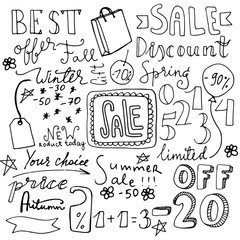 BEST
offer
Fall
SALE
Discount
Winter
-10%
Spring
-90%
-30
-50 -70
SALE
NEW
product today
Your choice
limited
price
Summer
sale!!!
-50
OFF
-20
Autumn
%
1+1=3